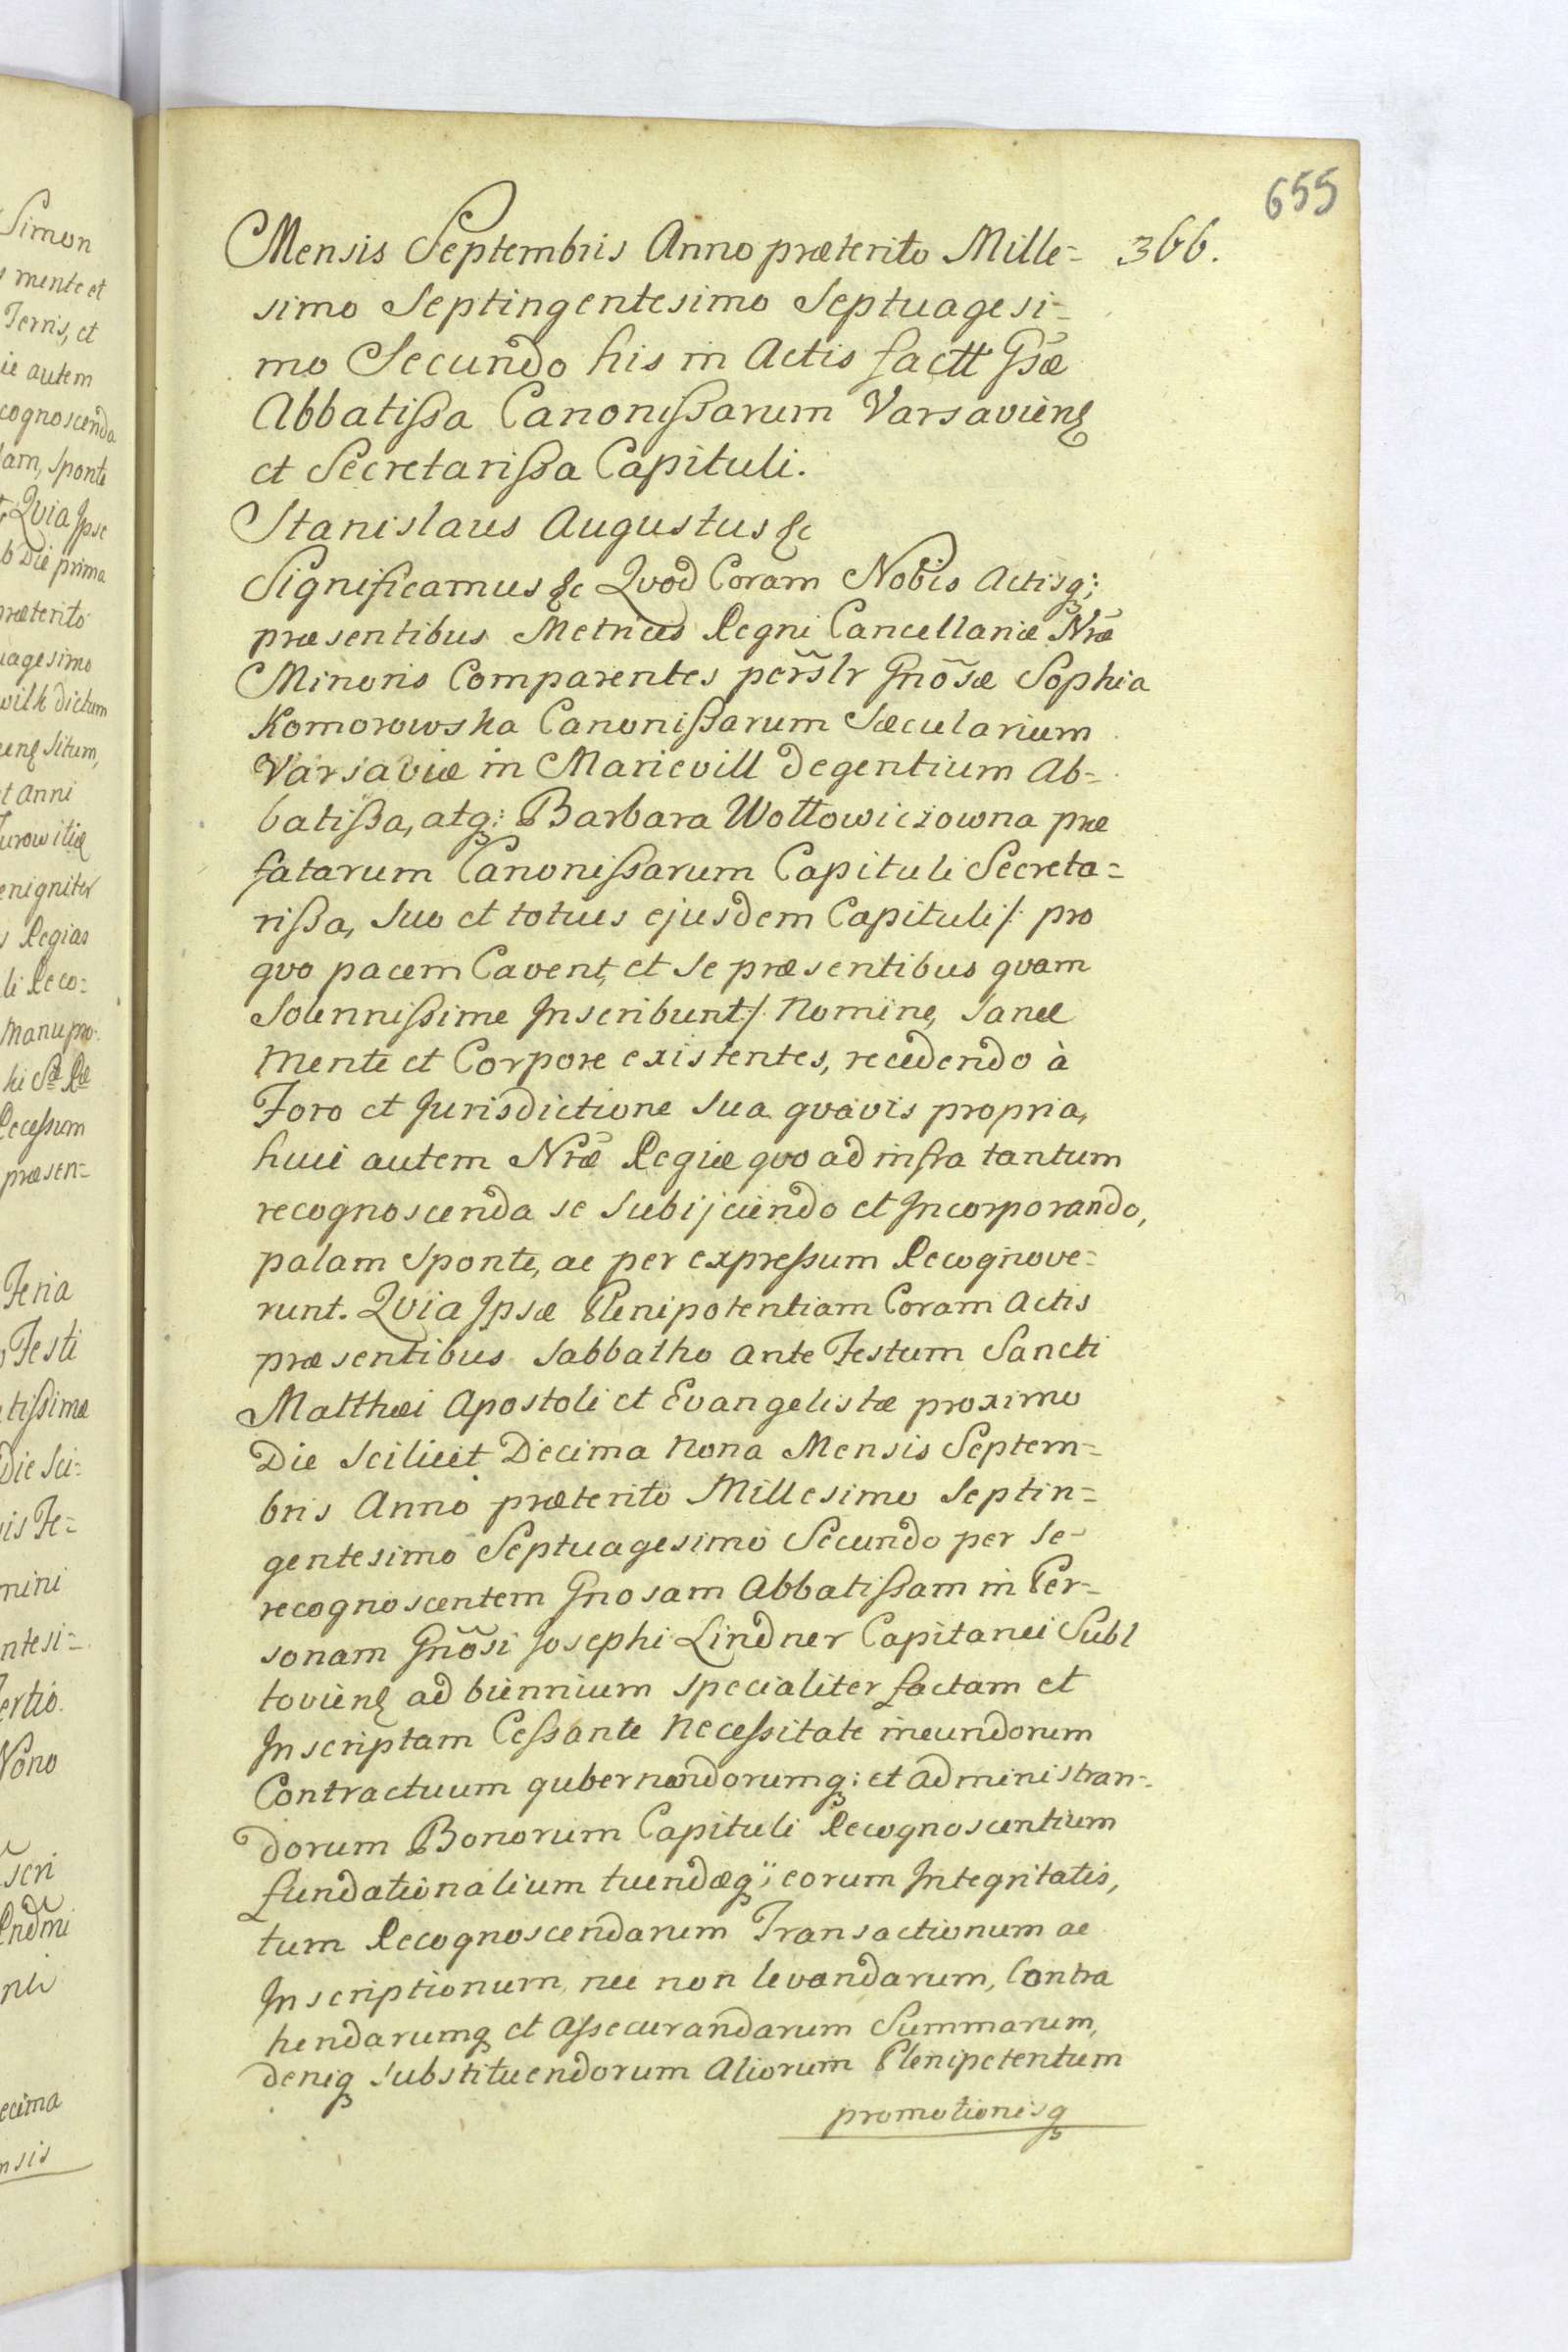 655
Mensis Septembris Anno præterito Mille= 366.
simo Septingentesimo Septuagesi=
mo Secundo his in Actis factt Gsæ
Abbatißa Canonißarum Varsavienß
et Secretarißa Capituli.
Stanislaus Augustus &c
Significamus &c Qvod Coram Nobis Actisq;
præsentibus Metrices Regni Cancellariæ Nræ
Minoris Comparentes perslr Gnosæ Sophia
Komorowska Canonißarum Sæcularium
Varsaviæ in Marievill degentium Ab=
batißa, atq; Barbara Wottowiczowna præ
fatarum Canonißarum Capituli Secreta=
rißa, suo et totius ejusdem Capituli /: pro
qvo pacem Cavent, et se præsentibus qvam
Solennißime Inscribunt :/ Nomine, sanæ
mente et Corpore existentes, recedendo à
Foro et Jurisdictione sua qvavis propria,
huic autem Nræ Regiæ qvo ad infra tantum
recognoscenda se subijciendo et Incorporando,
palam sponte, ac per expreßum Recognove=
runt. Qvia Ipsæ Plenipotentiam Coram Actis
præsentibus Sabbatho ante Festum Sancti
Matthæi Apostoli et Evangelistæ proximo
Die scilicet Decima Nona Mensis Septem=
bris Anno præterito Millesimo Septin=
gentesimo Septuagesimo Secundo per se
recognoscentem Gnosam Abbatißam in Per=
sonam Gnosi Josephi Lindner Capitanei Subl
tovienß ad biennium specialiter factam et
Inscriptam Ceßante Neceßitate ineundorum
Contractuum gubernandorumq; et Administran=
dorum Bonorum Capituli Recognoscentium
fundationalium tuendæq; eorum Integritatis,
tum Recognoscendarum Transactionum ac
Inscriptionum, nec non levandarum, Contra
hendarumq et Aßecurandarum Summarum,
deniq substituendorum Aliorum Plenipotentum
promotionisq